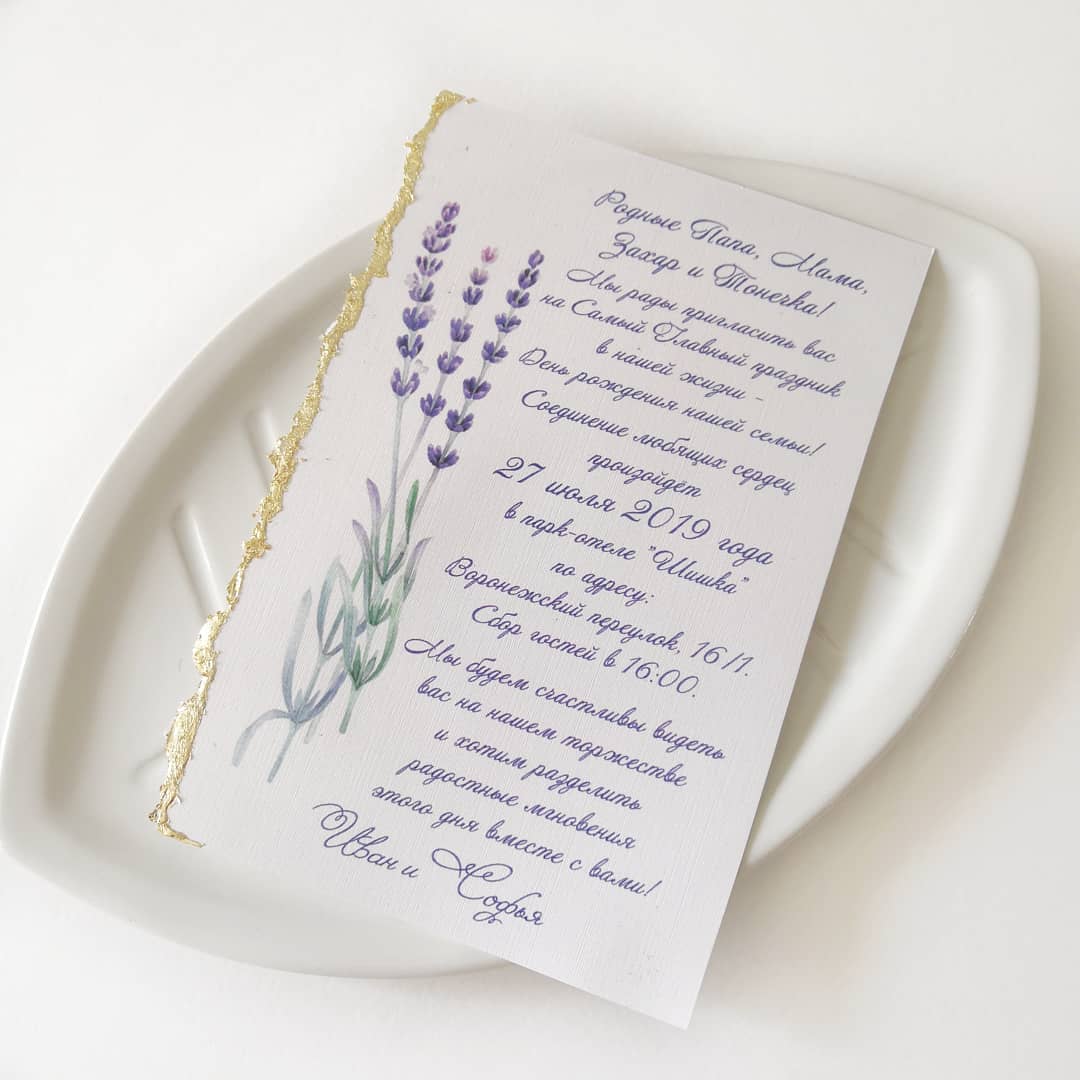 Родные Папа, Мама,
Захар и Тонечка!
Мы рады пригласить вас
на Самый Главный праздник
в нашей жизни -
День рождения нашей семьи!
Соединение любящих сердец
произойдёт
27 июля 2019 года
в парк-отеле "Шишка"
по адресу:
Воронежский переулок, 16/1.
Сбор гостей в 16:00.
Мы будем счастливы видеть
вас на нашем торжестве
и хотим разделить
радостные мгновения
этого дня вместе с вами!
Иван и Софья